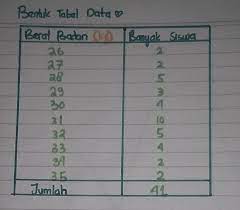 Bentuk Tabel Data ♡
Berat Badan (kg) Banyak Siswa
26 2
27 2
28 5
29 3
30 4
31 10
32 5
33 4
34 2
35 2
Jumlah 41